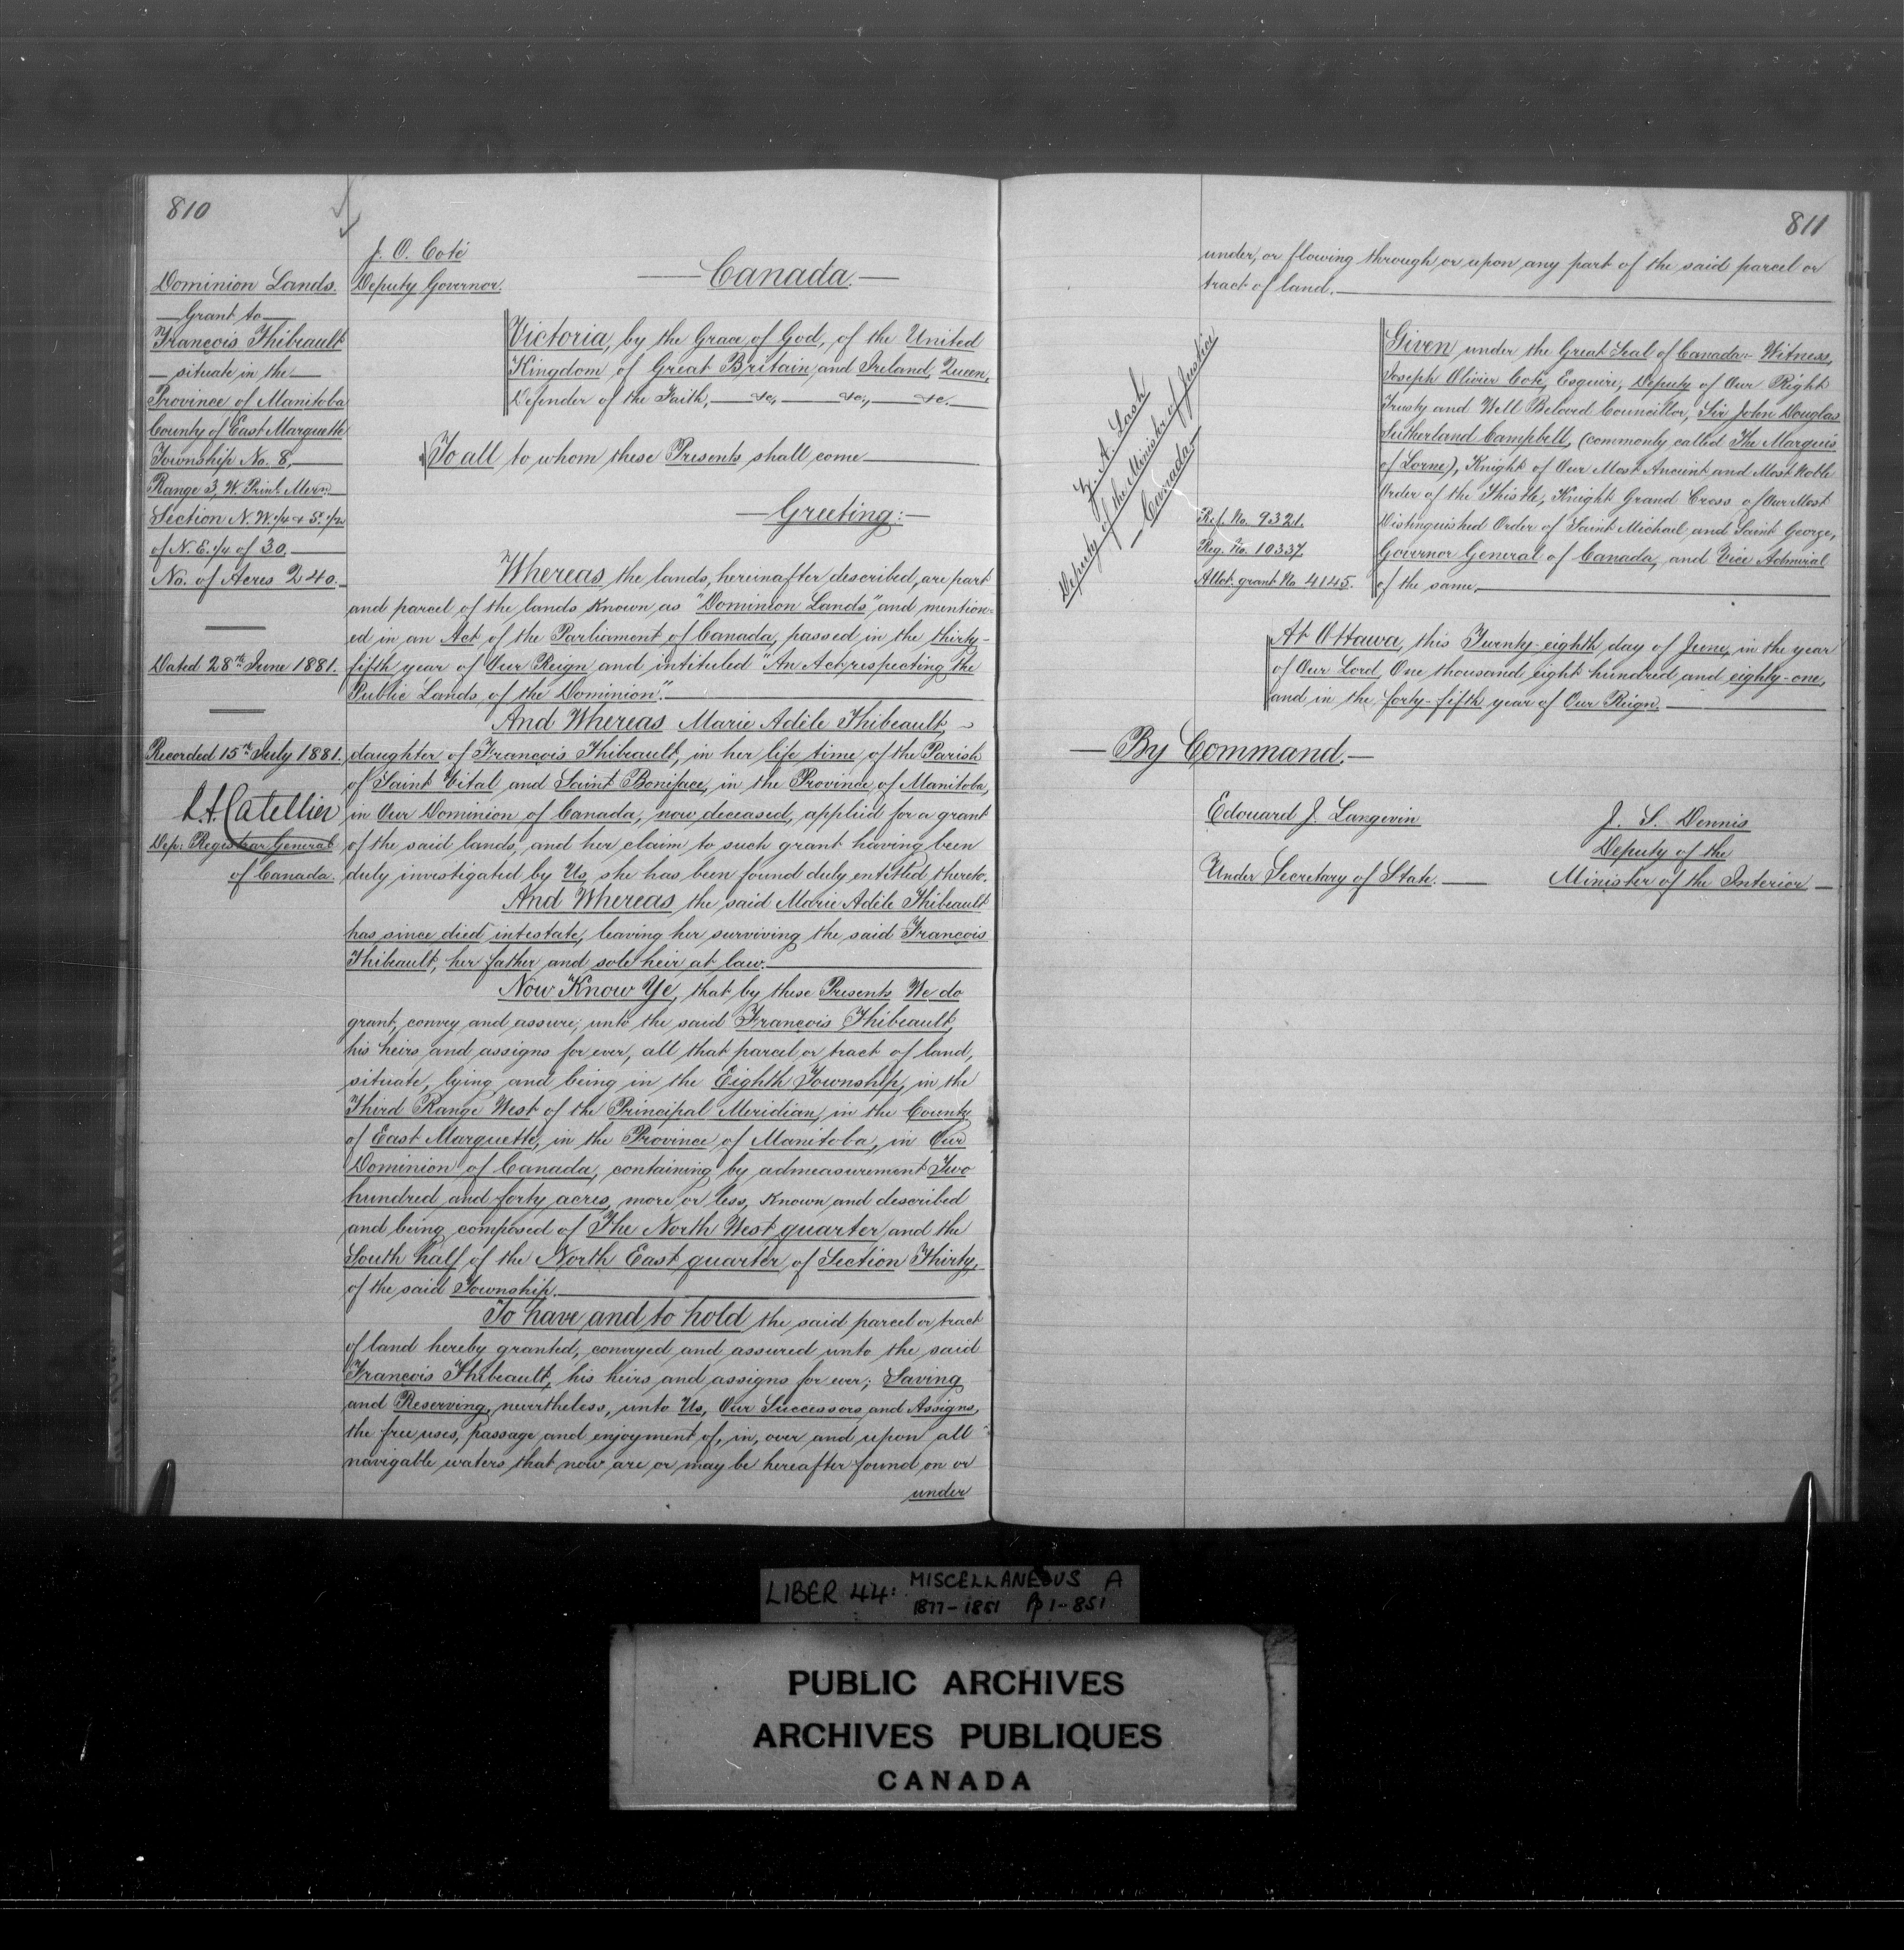 810
Dominion Lands.
Grant to
François Thibeault
situate in the
Province of Manitoba
County of East Marquette
Township No. 8,
Range 3, W. Prinl. Mern.
Section N.W. 1/4 & S. 1/2
of N.E. 1/4 of 30.
No. of Acres 240.
Dated 28th June 1881.
Recorded 15th July 1881.
L.A. Catellier
Dep: Registrar General
of Canada.
J. O. Coté
Deputy Governor.
Canada.
Victoria, by the Grace of God, of the United
Kingdom of Great Britain and Ireland, Queen,
Defender of the Faith, &c, &c, &c.
To all to whom these Presents shall come
Greeting:
Whereas the lands, hereinafter described, are part
and parcel of the lands known as "Dominion Lands," and mention-
ed in an Act of the Parliament of Canada, passed in the thirty-
fifth year of Our Reign and intituled "An Act respecting the
Public Lands of the Dominion".
And Whereas Marie Adèle Thibeault,
daughter of François Thibeault, in her life time of the Parish
of Saint Vital and Saint Boniface, in the Province of Manitoba,
in Our Dominion of Canada, now deceased, applied for a grant
of the said lands, and her claim to such grant having been
duly investigated by Us, she has been found duly entitled thereto.
And Whereas the said Marie Adèle Thibeault
has since died intestate, leaving her surviving the said François
Thibeault, her father and sole heir at law.
Now Know Ye, that by these Presents We do
grant, convey and assure, unto the said François Thibeault,
his heirs and assigns for ever, all that parcel or tract of land,
situate, lying and being in the Eighth Township, in the
Third Range West of the Principal Meridian, in the County
of East Marquette, in the Province of Manitoba, in Our
Dominion of Canada, containing by admeasurement Two
hundred and forty acres, more or less, known and described
and being composed of The North West quarter and the
South half of the North East quarter of Section Thirty,
of the said Township.
To have and to hold the said parcel or tract
of land hereby granted, conveyed and assured unto the said
François Thibeault, his heirs and assigns for ever; Saving
and Reserving, nevertheless, unto Us, Our Successors and Assigns,
the free uses, passage and enjoyment of, in, over and upon all
navigable waters that now are or may be hereafter found on or
under
811
under, or flowing through or upon any part of the said parcel or
tract of land.
Z. A. Lash
Deputy of the Minister of Justice
Canada
Ref. No. 9321.
Reg. No. 10337.
Allot. grant No 4145.
Given under the Great Seal of Canada:- Witness,
Joseph Olivier Coté, Esquire, Deputy of Our Right
Trusty and Well Beloved Councillor, Sir John Douglas
Sutherland Campbell, (commonly called The Marquis
of Lorne), Knight of Our Most Ancient and Most Noble
Order of the Thistle, Knight Grand Cross of Our Most
Distinguished Order of Saint Michael and Saint George,
Governor General of Canada, and Vice Admiral
of the same.
At Ottawa, this Twenty-eighth day of June, in the year
of Our Lord, One thousand eight hundred and eighty-one,
and in the forty-fifth year of Our Reign.
By Command.
Edouard J. Langevin
Under Secretary of State.
J. S. Dennis
Deputy of the
Minister of the Interior
LIBER 44: MISCELLANEOUS A
1877-1881 Pp 1-851
PUBLIC ARCHIVES
ARCHIVES PUBLIQUES
CANADA